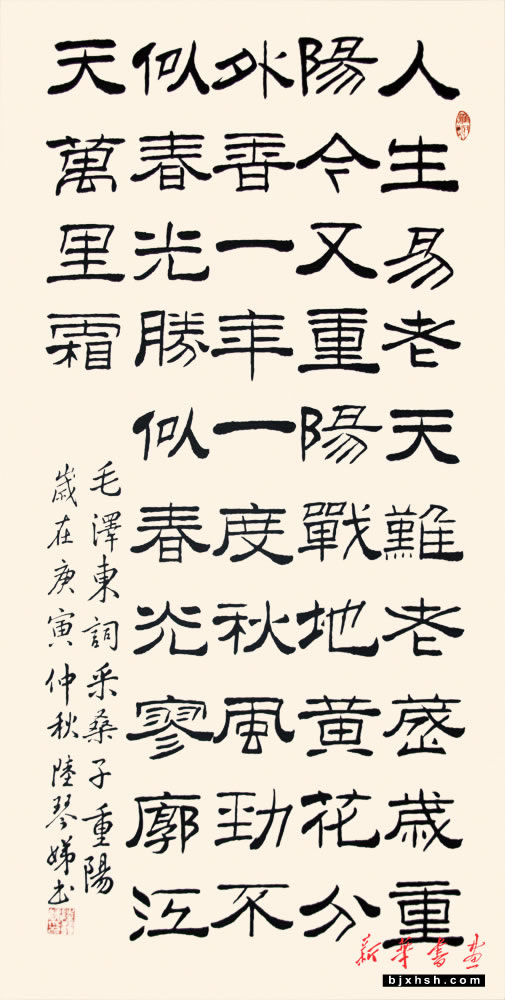 人生易老天難老歲歲重
陽今又重陽戰地黃花分
外香一年一度秋風勁不
似春光勝似春光寥廓江
天萬里霜
毛澤東詞采桑子重陽
歲在庚寅仲秋陸琴娣书
新华書画
bjxhsh.com